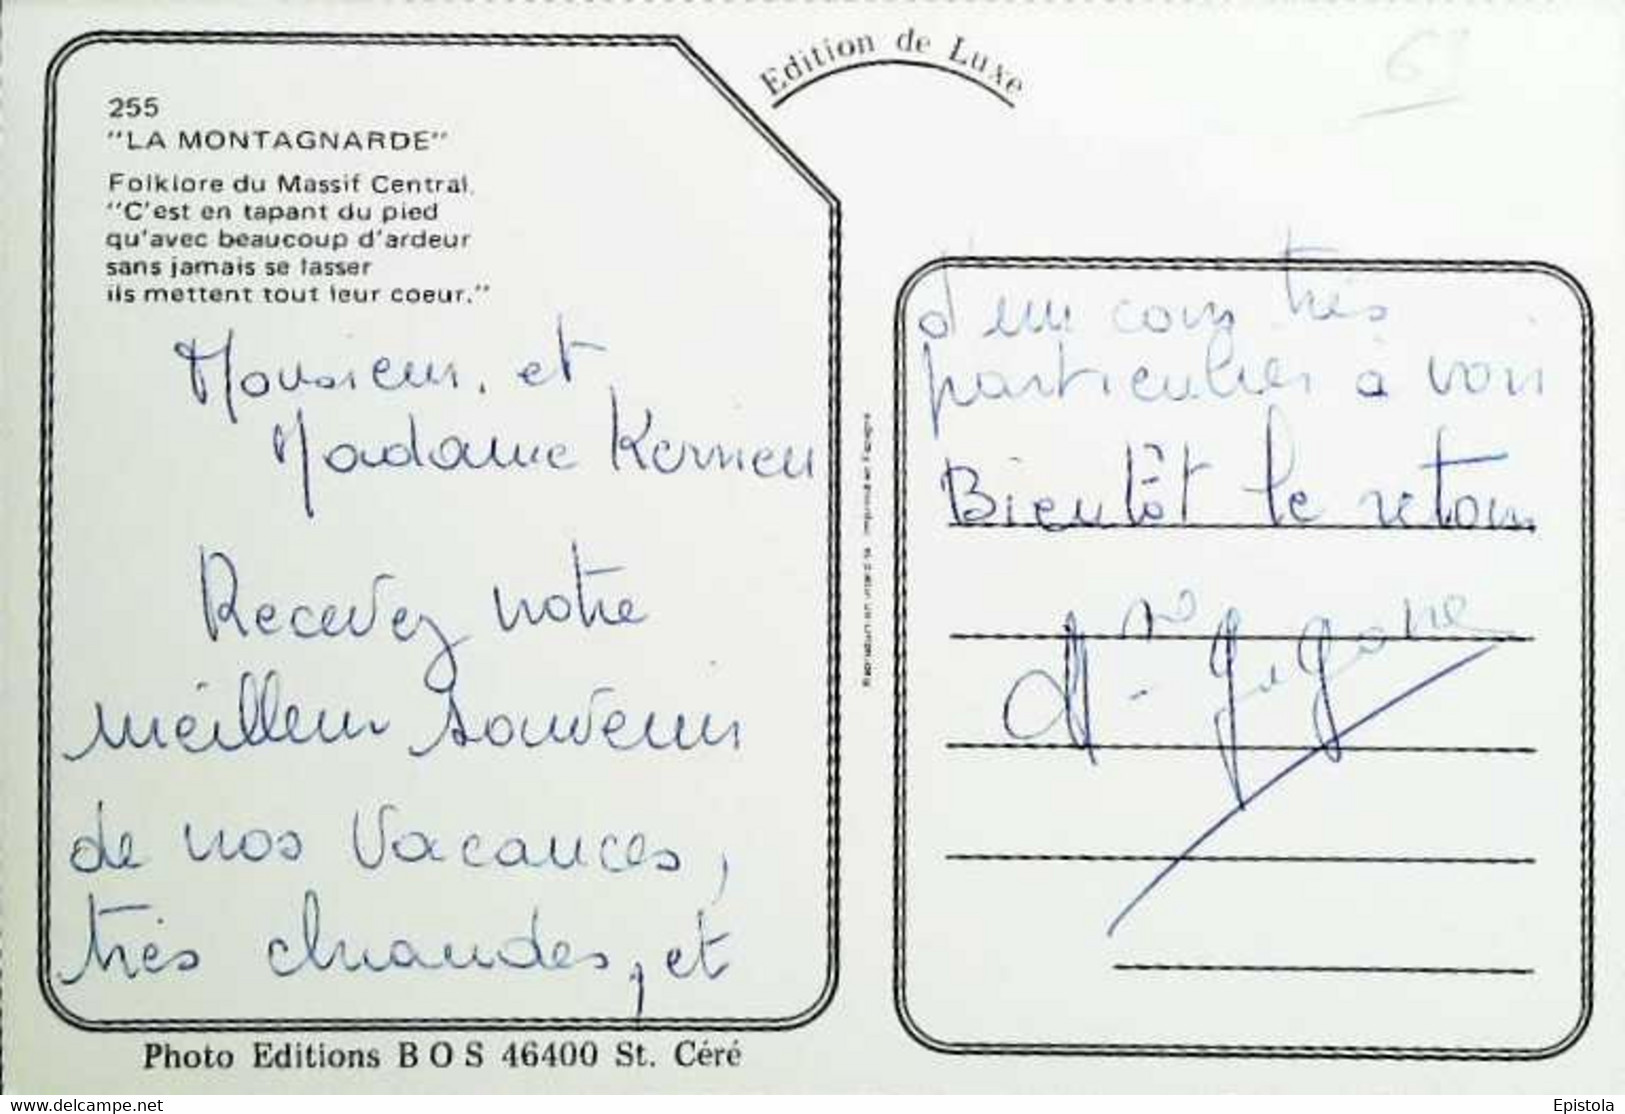 Edition de Luxe
255
"LA MONTAGNARDE"
Folklore du Massif Central.
"C'est en tapant du pied
qu'avec beaucoup d'ardeur
sans jamais se lasser
ils mettent tout leur coeur."
Monsieur, et
Madame
Recevez notre
meilleur souvenir
de nos Vacances,
très chaudes, et
d'un très
particulier à
Bientôt le retour
Reproduction interdite Imprimé en Espagne
Photo Editions BOS 46400 St. Céré
delcampe.net
Epistola